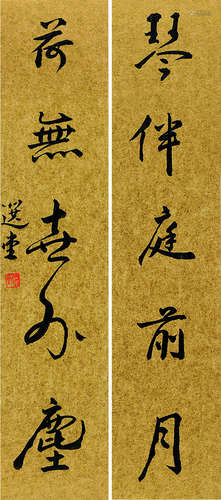 琴伴庭前月
荷無世外塵
選堂